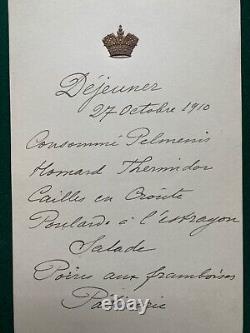 Déjeuner
27 Octobre 1910
Consommé Pelmenis
Homard Thermidor
Cailles en Croûte
Poularde à l'estragon
Salade
Poires aux framboises
Patisserie